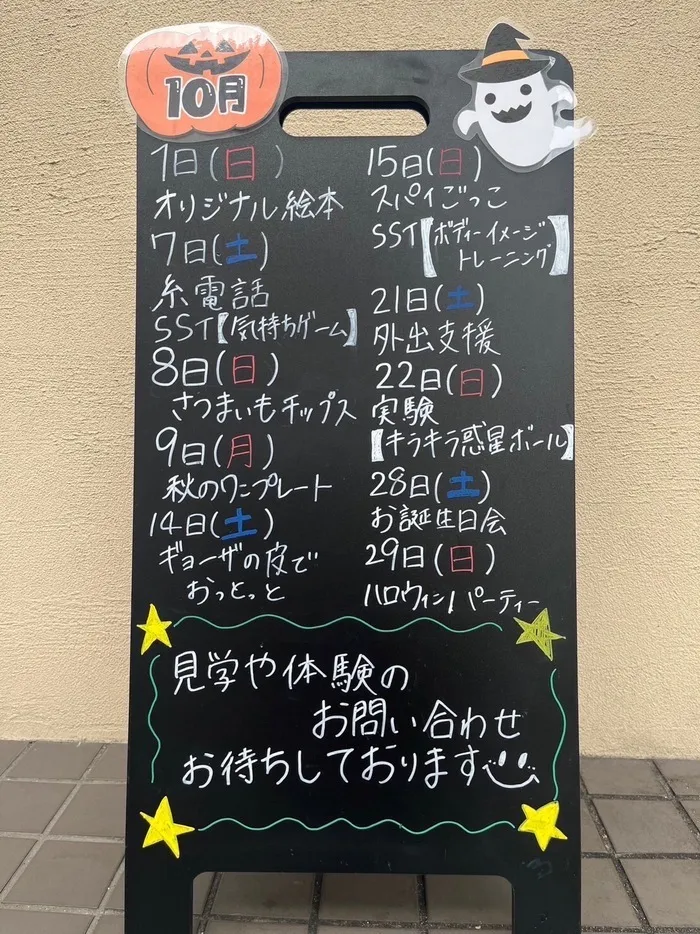 10月
1日(日)
オリジナル絵本
7日(土)
糸電話
SST【気持ちゲーム】
8日(日)
さつまいもチップス
9日(月)
秋のワンプレート
14日(土)
ギョーザの皮で
おっとっと
15日(日)
スパイごっこ
SST【ボディーイメージ
トレーニング】
21日(土)
外出支援
22日(日)
実験
【キラキラ惑星ボール】
28日(土)
お誕生日会
29日(日)
ハロウィンパーティー
見学や体験の
お問い合わせ
お待ちしております